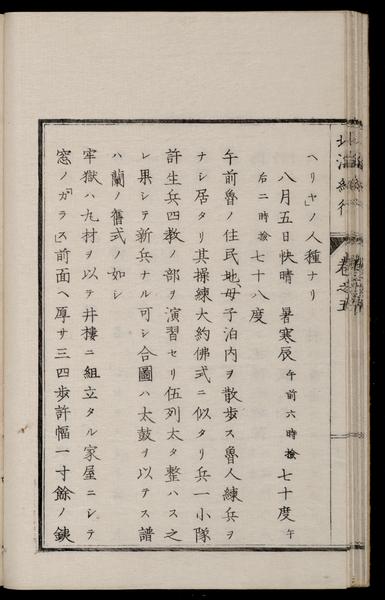 北海紀行 卷之五
ヘリヤ」ノ人種ナリ
八月五日快晴 暑寒辰午前六時檢七十度午
后二時檢七十八度
午前魯ノ住民地、母子泊内ヲ散歩ス魯人練兵ヲ
ナシ居タリ其操練大約佛式ニ似タリ兵一小隊
許生兵四教ノ部ヲ演習セリ伍列太タ整ハス之
レ果シテ新兵ナル可シ合圖ハ太鼓ヲ以テス譜
ハ蘭ノ舊式ノ如シ
牢獄ハ丸材ヲ以テ井樓ニ組立タル家屋ニシテ
窓ノ「ガラス」前面ヘ厚サ三四歩許幅一寸餘ノ鐵